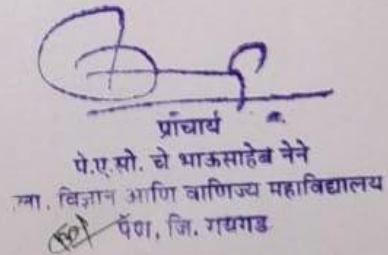 प्राचार्य
पे.ए.सो. चे भाऊसाहेब नेने
ला, विज्ञान आणि वाणिज्य महाविद्यालय
पेण, जि. रायगड